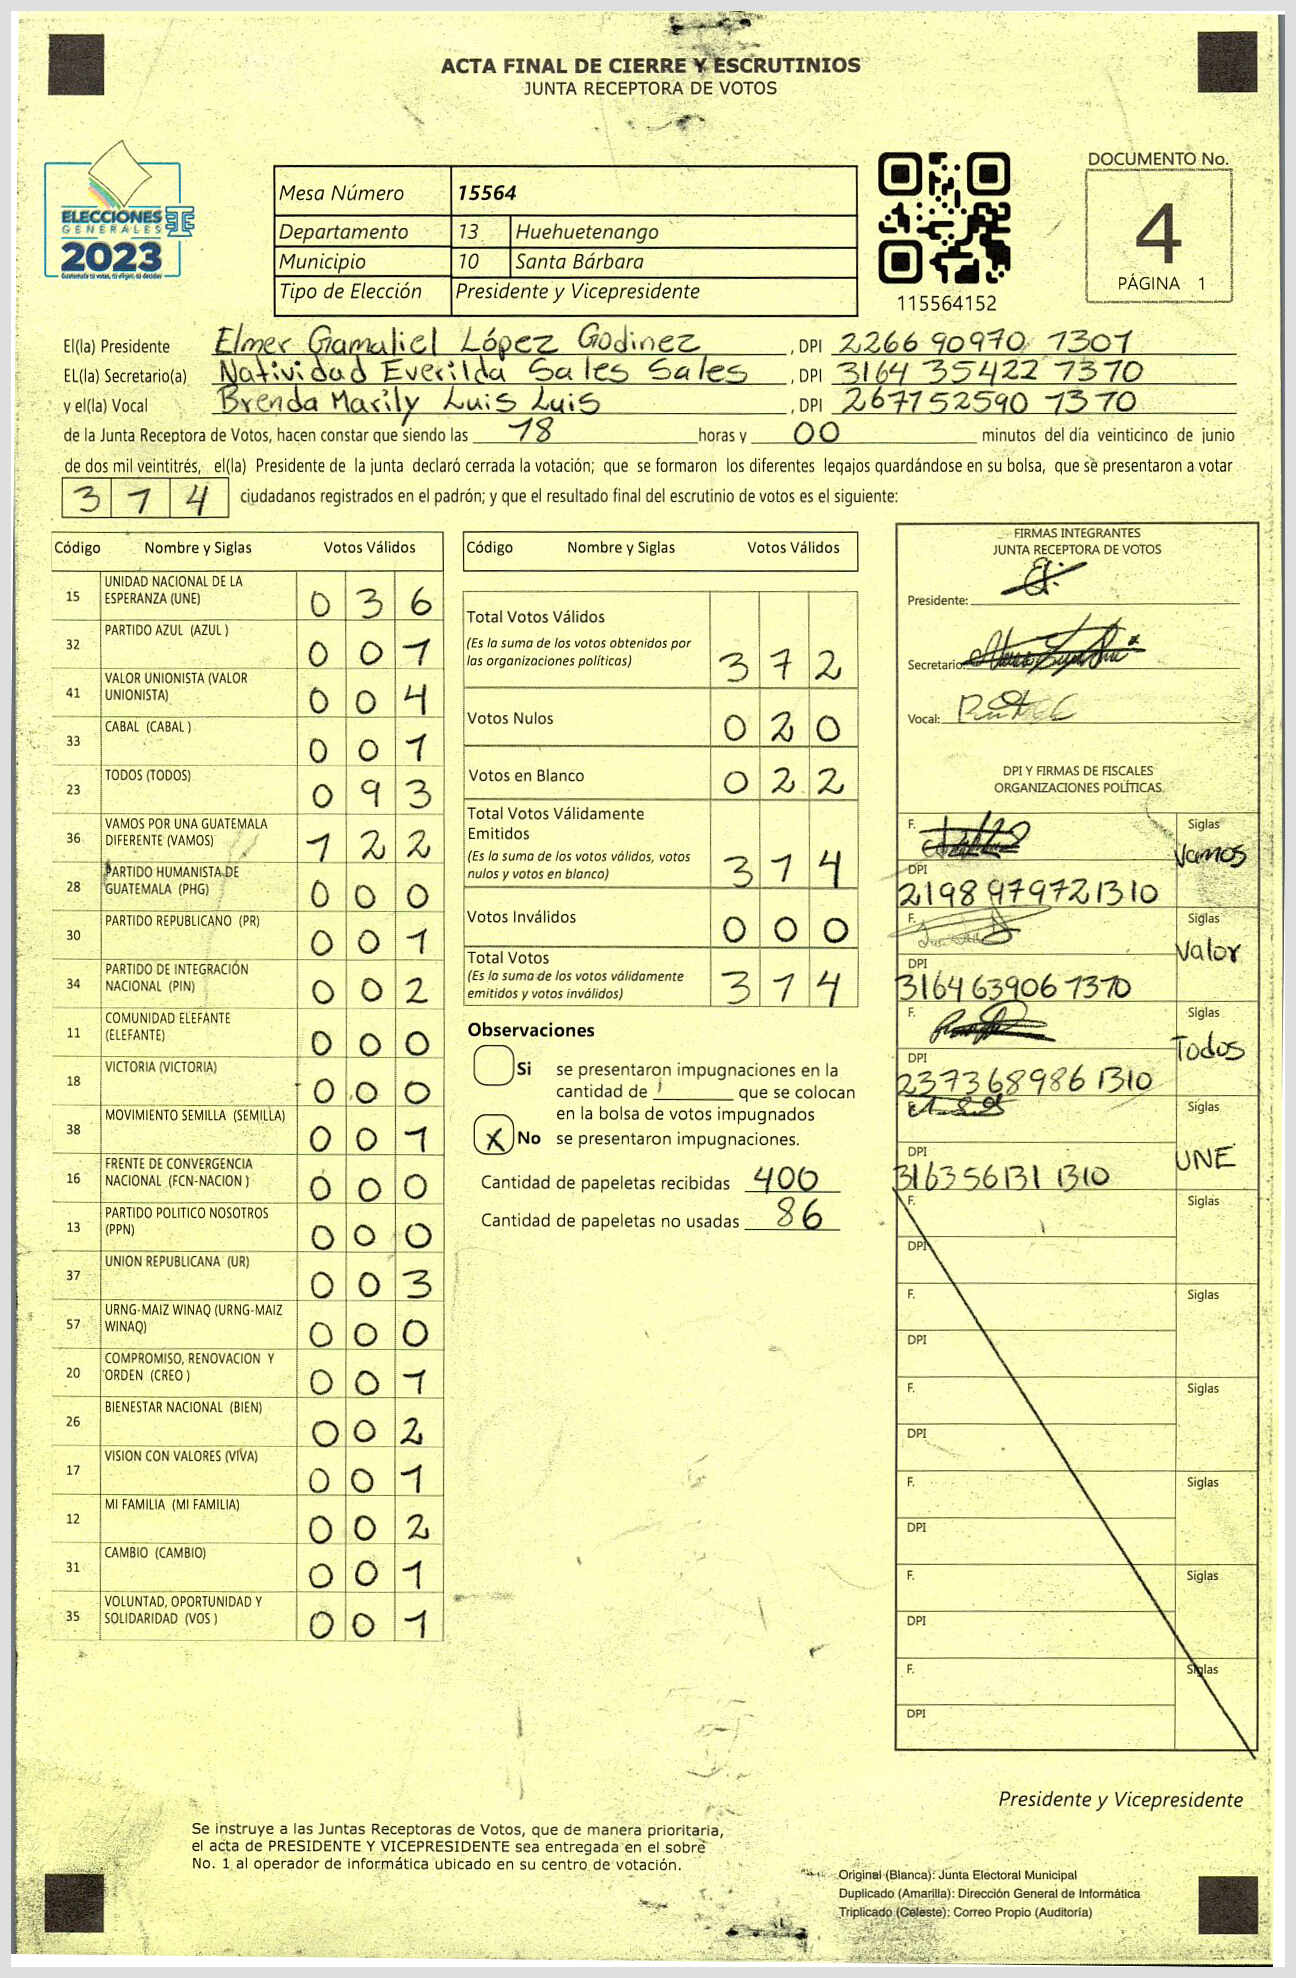 ACTA FINAL DE CIERRE Y ESCRUTINIOS
JUNTA RECEPTORA DE VOTOS
ELECCIONES
GENERALES
2023
Guatemala tú votas, tú eliges, tú decides
Mesa Número 15564
Departamento 13 Huehuetenango
Municipio 10 Santa Bárbara
Tipo de Elección Presidente y Vicepresidente
115564152
DOCUMENTO No.
4
PÁGINA 1
El(la) Presidente Elmer Gamaliel López Godinez , DPI 2266 90970 1301
EL(la) Secretario(a) Natividad Everilda Sales Sales , DPI 3164 35422 1310
y el(la) Vocal Brenda Marily Luis Luis , DPI 2671 52590 1310
de la Junta Receptora de Votos, hacen constar que siendo las 18 horas y 00 minutos del día veinticinco de junio
de dos mil veintitrés, el(la) Presidente de la junta declaró cerrada la votación; que se formaron los diferentes legajos quardándose en su bolsa, que se presentaron a votar
3 1 4 ciudadanos registrados en el padrón; y que el resultado final del escrutinio de votos es el siguiente:
Código Nombre y Siglas Votos Válidos
15 UNIDAD NACIONAL DE LA ESPERANZA (UNE) 0 3 6
32 PARTIDO AZUL (AZUL ) 0 0 1
41 VALOR UNIONISTA (VALOR UNIONISTA) 0 0 4
33 CABAL (CABAL ) 0 0 1
23 TODOS (TODOS) 0 9 3
36 VAMOS POR UNA GUATEMALA DIFERENTE (VAMOS) 1 2 2
28 PARTIDO HUMANISTA DE GUATEMALA (PHG) 0 0 0
30 PARTIDO REPUBLICANO (PR) 0 0 1
34 PARTIDO DE INTEGRACIÓN NACIONAL (PIN) 0 0 2
11 COMUNIDAD ELEFANTE (ELEFANTE) 0 0 0
18 VICTORIA (VICTORIA) 0 0 0
38 MOVIMIENTO SEMILLA (SEMILLA) 0 0 1
16 FRENTE DE CONVERGENCIA NACIONAL (FCN-NACION ) 0 0 0
13 PARTIDO POLITICO NOSOTROS (PPN) 0 0 0
37 UNION REPUBLICANA (UR) 0 0 3
57 URNG-MAIZ WINAQ (URNG-MAIZ WINAQ) 0 0 0
20 COMPROMISO, RENOVACION Y ORDEN (CREO ) 0 0 1
26 BIENESTAR NACIONAL (BIEN) 0 0 2
17 VISION CON VALORES (VIVA) 0 0 1
12 MI FAMILIA (MI FAMILIA) 0 0 2
31 CAMBIO (CAMBIO) 0 0 1
35 VOLUNTAD, OPORTUNIDAD Y SOLIDARIDAD (VOS ) 0 0 1
Código Nombre y Siglas Votos Válidos
Total Votos Válidos
(Es la suma de los votos obtenidos por
las organizaciones políticas) 3 7 2
Votos Nulos 0 2 0
Votos en Blanco 0 2 2
Total Votos Válidamente
Emitidos
(Es la suma de los votos válidos, votos
nulos y votos en blanco) 3 1 4
Votos Inválidos 0 0 0
Total Votos
(Es la suma de los votos válidamente
emitidos y votos inválidos) 3 1 4
Observaciones
Si se presentaron impugnaciones en la
cantidad de que se colocan
en la bolsa de votos impugnados
X No se presentaron impugnaciones.
Cantidad de papeletas recibidas 400
Cantidad de papeletas no usadas 86
FIRMAS INTEGRANTES
JUNTA RECEPTORA DE VOTOS
Presidente:
Secretario:
Vocal:
DPI Y FIRMAS DE FISCALES
ORGANIZACIONES POLÍTICAS
F. Siglas
Vamos
DPI
2198 97972 1310
F. Siglas
Valor
DPI
3164 63906 1310
F. Siglas
Todos
DPI
2373 68986 1310
Siglas
UNE
DPI
3163 56131 1310
F. Siglas
DPI
F. Siglas
DPI
F. Siglas
DPI
F. Siglas
DPI
F. Siglas
DPI
F. Siglas
DPI
Presidente y Vicepresidente
Se instruye a las Juntas Receptoras de Votos, que de manera prioritaria,
el acta de PRESIDENTE Y VICEPRESIDENTE sea entregada en el sobre
No. 1 al operador de informática ubicado en su centro de votación.
Original (Blanca): Junta Electoral Municipal
Duplicado (Amarilla): Dirección General de Informática
Triplicado (Celeste): Correo Propio (Auditoría)